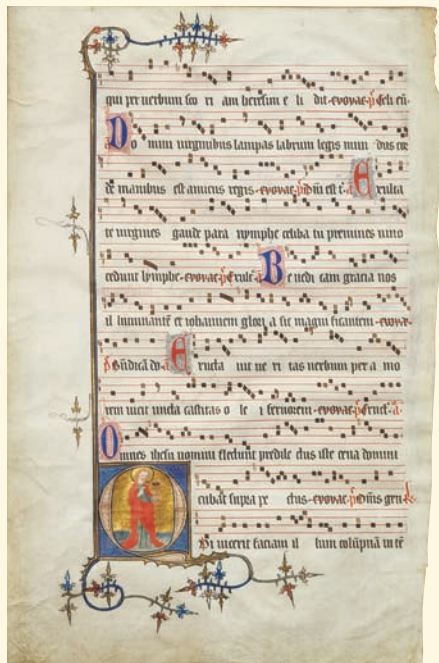 qui per uerbum sco ri am heresim e li dit evovae p̄s Celi en
Do mini uirginibus lampas labrum legis mun dus cor
de manibus est amicus regis evovae p̄s Dn̄i est t̄. a Exulta
te uirgines gaude para nymphe celiba tu premines nino
cedunt lymphe evovae p̄s Exult̄. a Benedi cam gracia nos
il luminantē et iohannem glori a sic magni ficantem evovae
p̄s Bn̄dicā dō a Eructa uit ue ri tas uerbum per a mo
rem uicit uncta castitas o le i feruorem evovae p̄s eruct̄. a
Omnes ihesu nomini flectunt predile ctus iste cena domini
cubat supra pe ctus evovae p̄s Om̄s gen R̄
Qui uicerit faciam il lum colūpnā in tē